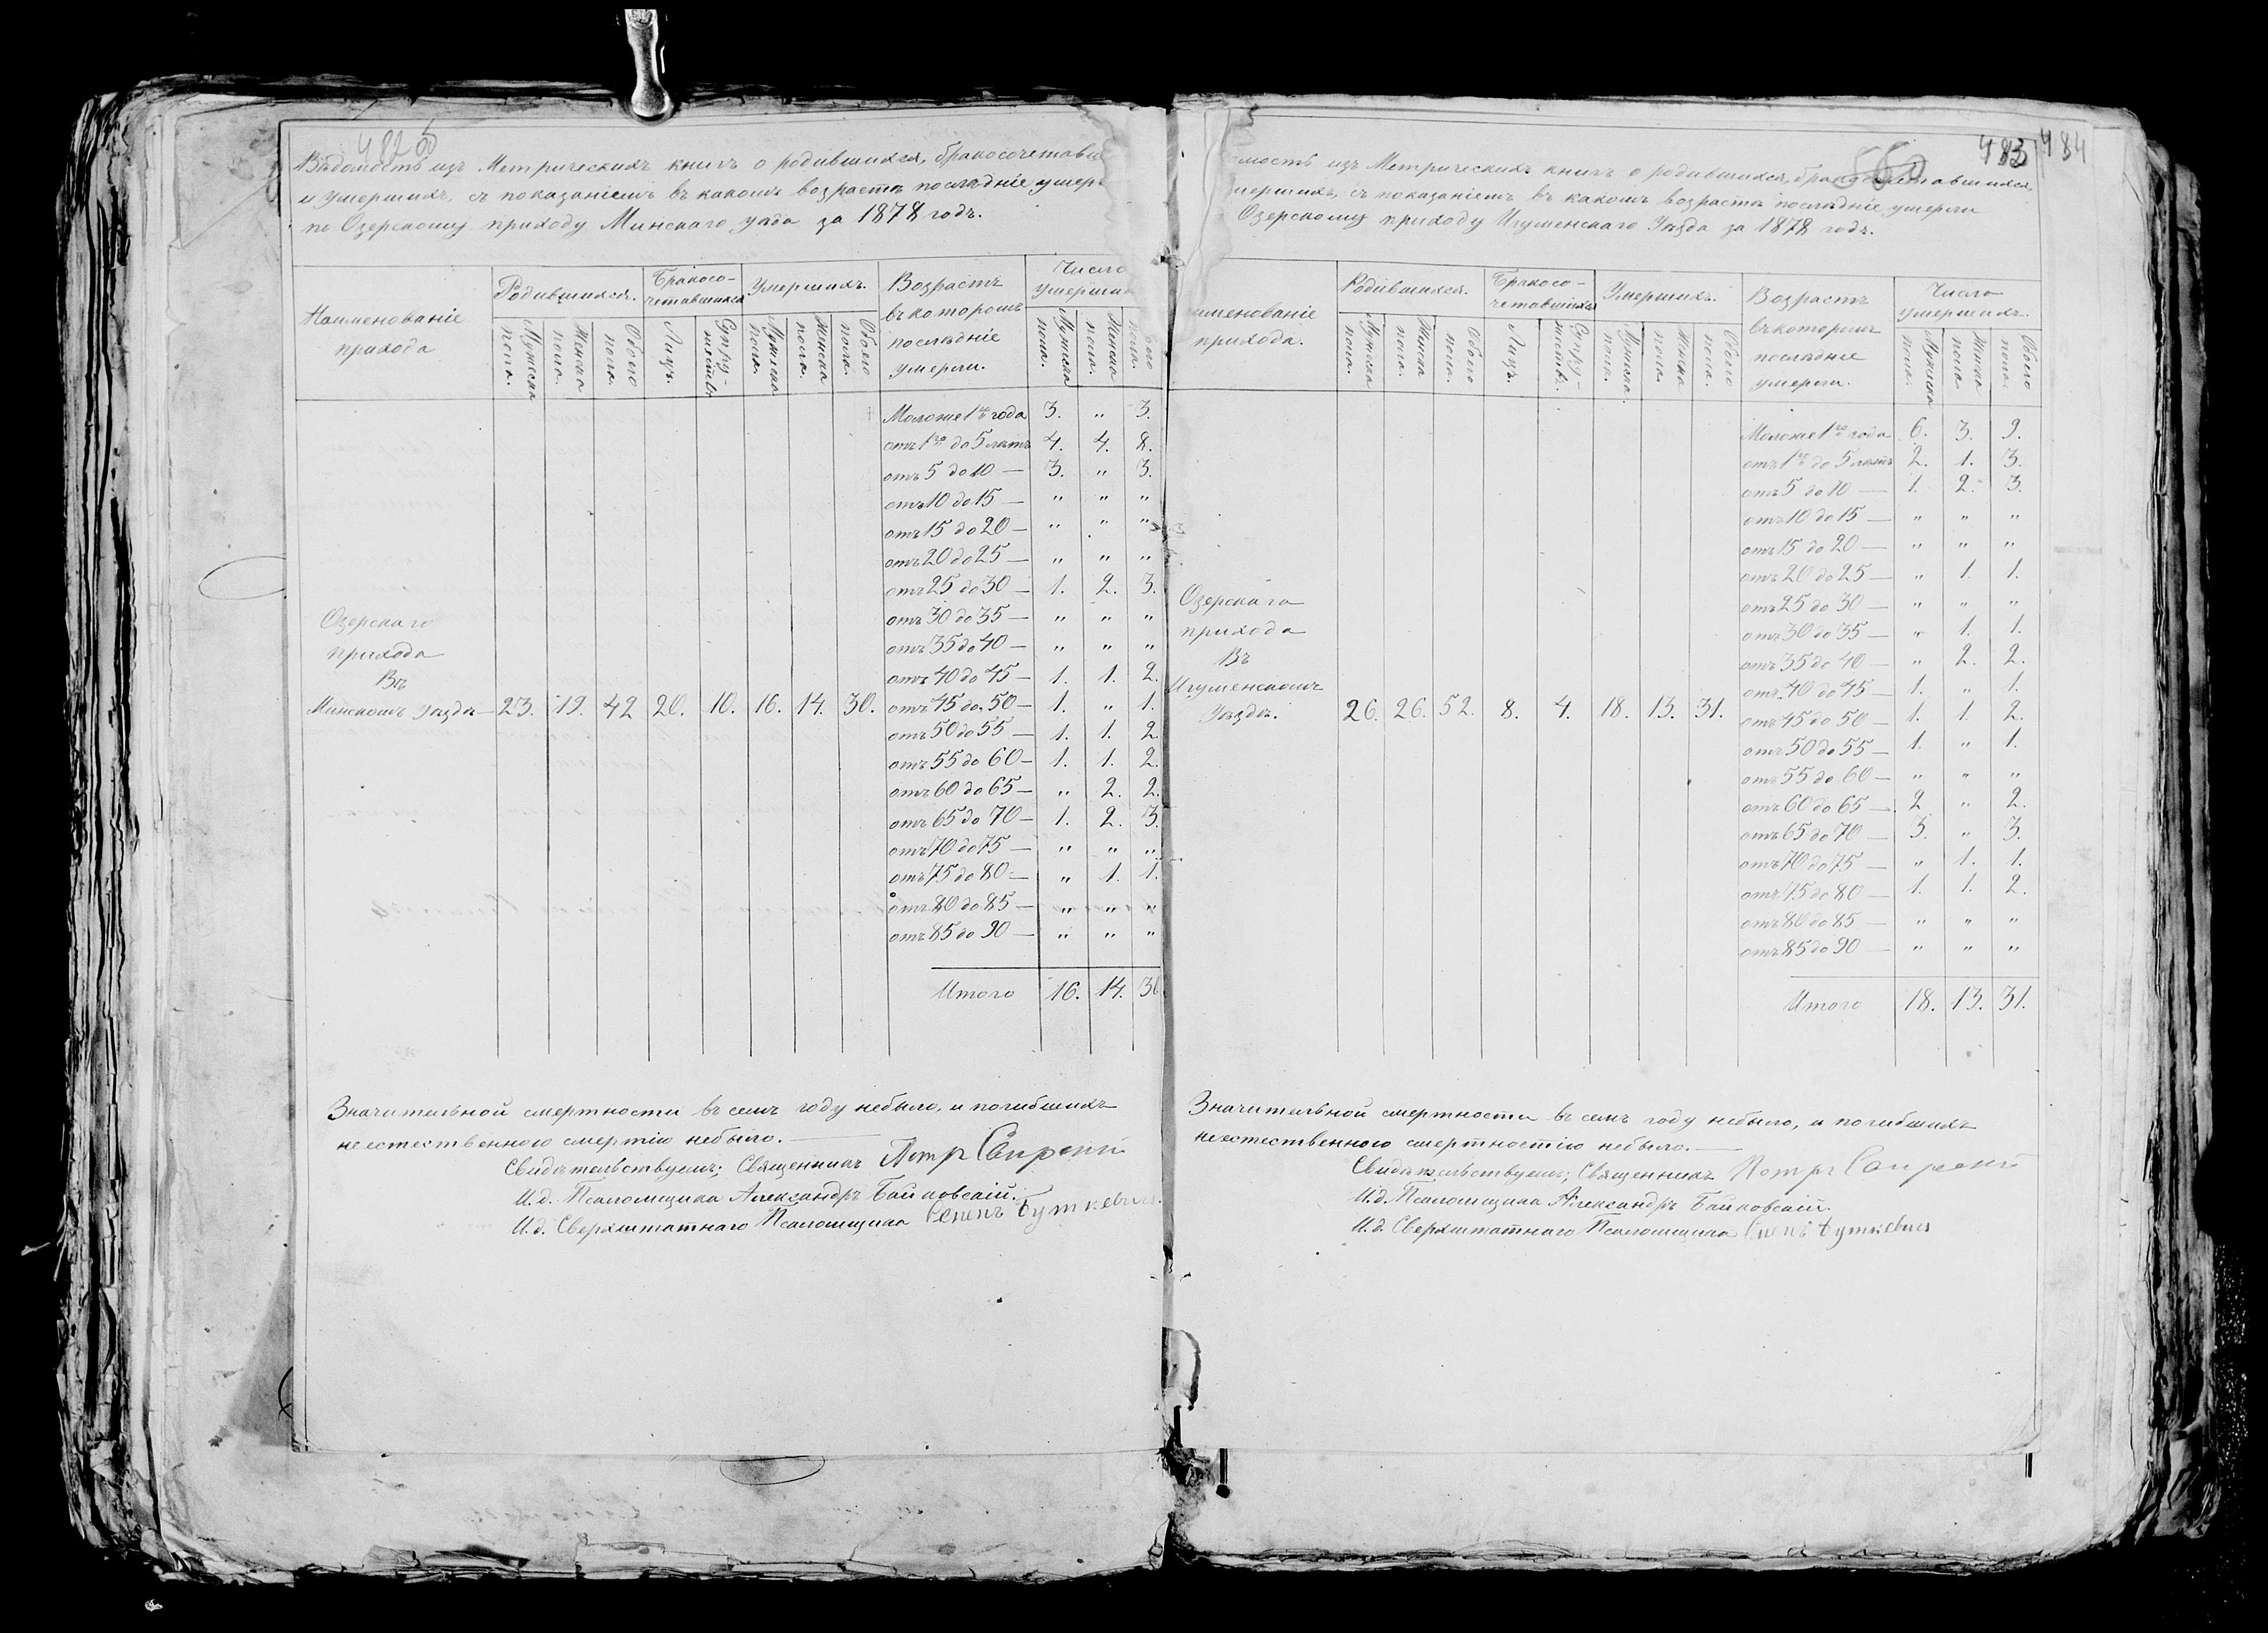 Вѣдомость изъ Метрическихъ книгъ о родившихся, бракосочетавш
и умершихъ, съ показаніемъ въ какомъ возрастѣ послѣдніе умер
по Озерскому приходу Минскаго уѣзда за 1878 годъ.
Наименованіе прихода
Родившихся.
Бракосо-четавшихся
Умершихъ.
Возрастъ въ которомъ послѣдніе умерли.
Число умерши
Мужска пола.
Женска пола.
Обоего пола.
Лицъ.
Супру-жествъ
Мужска пола.
Женска пола.
Обоего пола.
Мужска пола.
Женска пола.
пола.
Моложе 1го года 3. " 3.
отъ 1го до 5 лѣтъ 4. 4. 8.
отъ 5 до 10 — 3. " 3.
отъ 10 до 15 — " " "
отъ 15 до 20 — " " "
отъ 20 до 25 — " " "
отъ 25 до 30 — 1. 2. 3.
отъ 30 до 35 — " " "
отъ 35 до 40 — " " "
отъ 40 до 45 — 1. 1. 2.
Озерскаго
прихода
Въ
Минскомъ уѣздѣ — 23. 19. 42 20. 10. 16. 14. 30. отъ 45 до 50 — 1. " 1.
отъ 50 до 55 — 1. 1. 2.
отъ 55 до 60 — 1. 1. 2.
отъ 60 до 65 — " 2. 2.
отъ 65 до 70 — 1. 2. 3.
отъ 70 до 75 — " " "
отъ 75 до 80 — " 1. 1.
отъ 80 до 85 — " " "
отъ 85 до 90 — " " "
Итого 16. 14. 30
Значительной смертности въ семъ году небыло, и погибшихъ
неестественною смертію небыло. —
Свидѣтельствуемъ; Священникъ Петръ
И.д. Псаломщика Александръ Байковскій.
И.д. Сверхштатнаго Псаломщика Семенъ Буткевичъ.
483 484
560
мость изъ Метрическихъ книгъ о родившихся, бракосочетавшихся,
мершихъ, съ показаніемъ въ какомъ возрастѣ послѣдніе умерли
Озерскому приходу Игуменскаго Уѣзда за 1878 годъ.
именованіе прихода.
Родившихся.
Бракосо-четавшихся
Умершихъ.
Возрастъ въ которомъ послѣдніе умерли.
Число умершихъ.
Мужска пола.
Женска пола.
Обоего пола.
Лицъ.
Супру-жествъ.
Мужска пола.
Женска пола.
Обоего пола.
Мужска пола.
Женска пола.
Обоего пола.
Моложе 1го года 6. 3. 9.
отъ 1го до 5 лѣтъ 2. 1. 3.
отъ 5 до 10 — 1. 2. 3.
отъ 10 до 15 — " " "
отъ 15 до 20 — " " "
отъ 20 до 25 — " 1. 1.
отъ 25 до 30 — " " "
отъ 30 до 35 — " 1. 1.
отъ 35 до 40 — " 2. 2.
отъ 40 до 45 — 1. " 1.
Озерскаго
прихода
Въ
Игуменскомъ
Уѣздѣ. 26. 26. 52. 8. 4. 18. 13. 31. отъ 45 до 50 — 1. 1. 2.
отъ 50 до 55 — 1. " 1.
отъ 55 до 60 — " " "
отъ 60 до 65 — 2 " 2.
отъ 65 до 70 — 3. " 3.
отъ 70 до 75 — " 1. 1.
отъ 75 до 80 — 1. 1. 2.
отъ 80 до 85 — " " "
отъ 85 до 90 — " " "
Итого 18. 13. 31.
Значительной смертности въ семъ году небыло, и погибшихъ
неестественною смертностію небыло. —
Свидѣтельствуемъ; Священникъ Петръ
И.д. Псаломщика Александръ Байковскій.
И.д. Сверхштатнаго Псаломщика Семенъ Буткевичъ